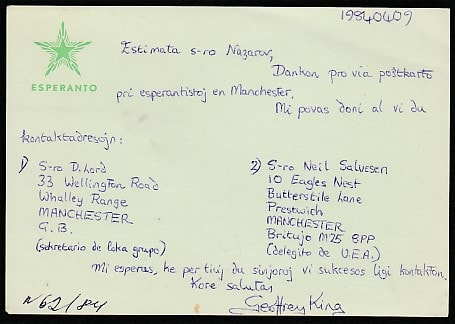 19840409
ESPERANTO
Estimata s-ro Nazarov,
Dankon pro via poŝtkarto
pri esperantistoj en Manchester.
Mi povas doni al vi du
kontaktadresojn:
1) S-ro D. Lord
33 Wellington Road
Whalley Range
MANCHESTER
G.B.
(sekretario de loka grupo)
2) S-ro Neil Salvesen
10 Eagles Nest
Butterstile Lane
Prestwich
MANCHESTER
Britujo M25 8PP
(delegito de U.E.A.)
Mi esperas, ke per tiuj du sinjoroj vi sukcesos ligi kontakton.
Kore salutas
Geoffrey King
N 62/84